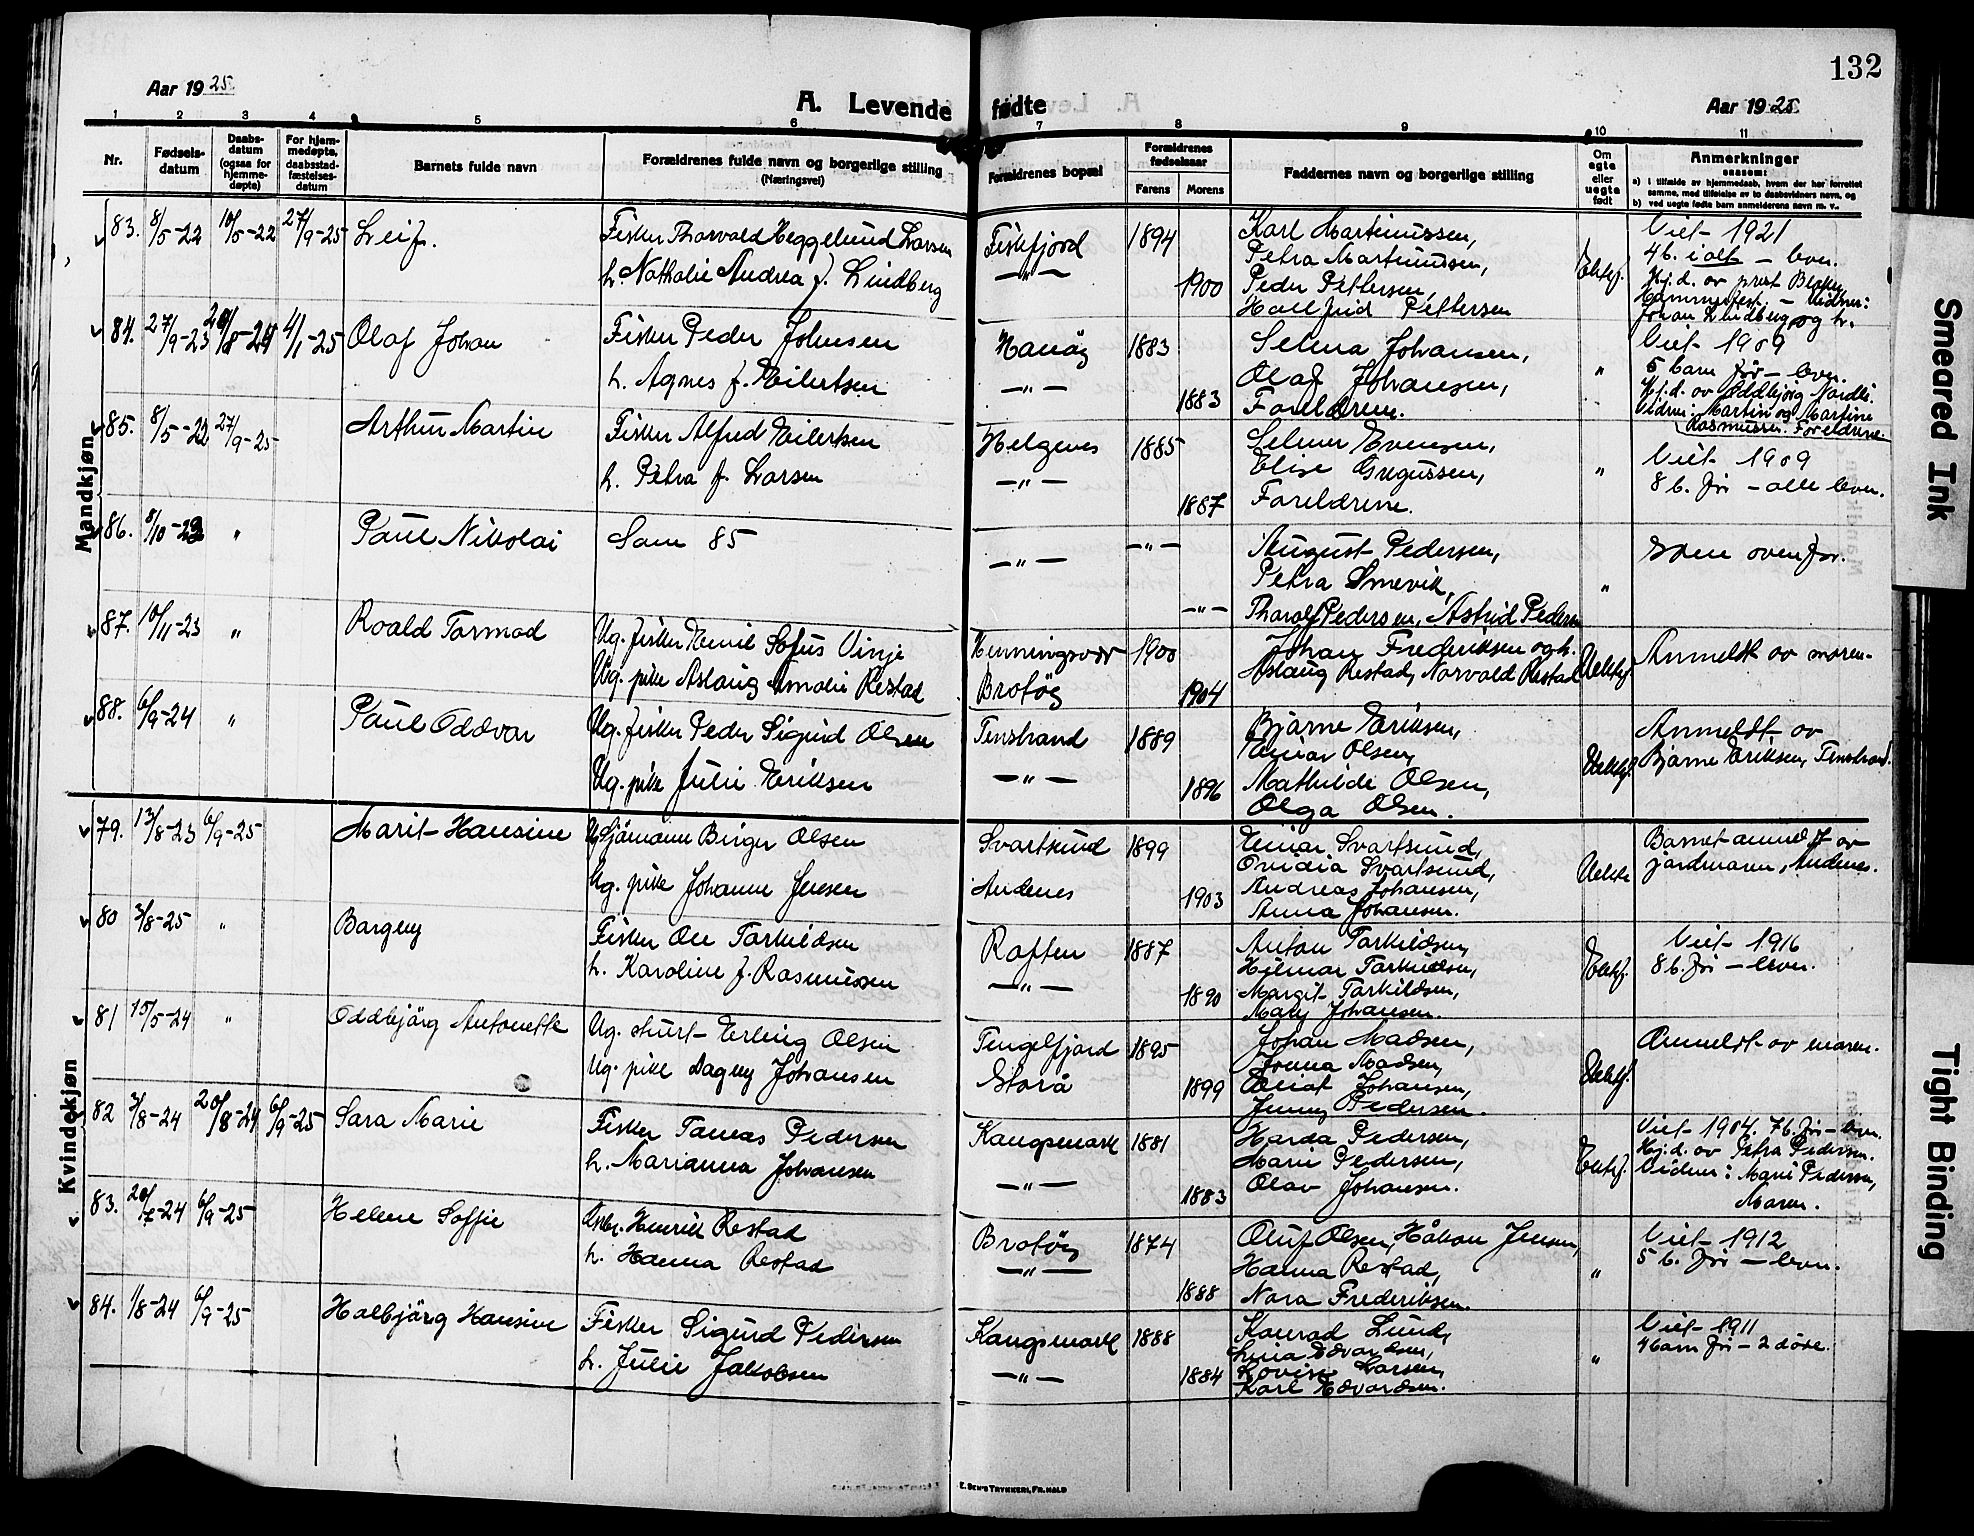 132
Aar 1925
A. Levende fødte
Aar 1925
1 2 3 4 5 6 7 8 9 10 11
Nr.
Fødsels-datum
Daabs-datum (ogsaa for hjemme-døpte)
For hjem-medøpte, daabsstad-fæstelses-datum
Barnets fulde navn
Forældrenes fulde navn og borgerlige stilling
(Næringsvei)
Forældrenes bopæl
Forældrenes fødselsaar
Farens
Morens
Faddernes navn og borgerlige stilling
Om egte eller uegte født
Anmerkninger
saasom:
a) i tilfælde av hjemmedaab, hvem der har forrettet
samme, med tilføielse av to daabsvidners navn, og
b) ved uegte fødte barn anmelderens navn m. v.
Mandkjøn
83. 8/5-22 10/5-22 27/9-25 Leif.
Fisker Thorvald Heggelund Larsen
h. Nathalie Andrea f. Lindberg
Fiskfjord 1894
—„— 1900
Karl Martinussen,
Petra Martinussen,
Peder Pettersen,
Hallfrid Pettersen
Ektef.
Viet 1921
4 b. i alt — lever.
Hj.d. av prest
Hammerfest. — Vidner:
Johan Lindberg og h.
84. 27/9-23 4/1-25 Olaf Johan
Fisker Peder Johnsen
h. Agnes f. Eilertsen
Hanøy 1883
—„— 1883
Selma Johansen,
Olaf Johansen,
Foreldrene.
„
Viet 1909
5 barn før — lever.
Hj.d. av Oddbjørg Nordli.
Vidner: Martin og Martine
Rasmussen. Foreldrene.
85. 8/5-22 27/9-25 Arthur Martin
Fisker Alfred Eilertsen
h. Petra f. Larsen
Helgenes 1885
—„— 1887
Selmer Evensen,
Elise Gregussen,
Foreldrene.
„
Viet 1909
8 b. før — alle lever.
86. 8/10-23 „ Paul Nikolai
Som 85
—„— —„—
August Pedersen,
Petra Smevik,
—„— Thorolf Pedersen, Astrid Pedersen
„
Som ovenfor.
87. 10/11-23 „ Roald Tormod
Ug. fisker Emil Sofus Vinje
Ug. pike Aslaug Amalie Restad
Henningsvær 1900
Brotøy 1904
Johan Frederiksen og h.
Aslaug Restad, Norvald Restad
Uektef.
Anmeldt av moren.
88. 6/9-24 „ Paul Oddvar
Ug. fisker Peder Sigurd Olsen
Ug. pike Julie Eriksen
Tenstrand 1889
—„— 1896
Bjarne Eriksen,
Einar Olsen,
Mathilde Olsen,
Olga Olsen.
Uektef.
Anmeldt av
Bjarne Eriksen, Tenstrand.
Kvindekjøn
79. 13/8-23 6/9-25 Marit Hansine
Ug. Sjømann Birger Olsen
Ug. pike Johanne Jensen
Svartsund 1899
Andenes 1903
Einar Svartsund,
Ovidia Svartsund,
Andreas Johansen,
Anna Johansen.
Uekte
Barnet anmeldt av
jordmoren, Andenes.
80 3/8-25 „ Borgny
Fisker Ole Torkildsen
h. Karoline f. Rasmussen
Raften 1887
—„— 1890
Anton Torkildsen,
Hilmar Torkildsen,
Margit Torkildsen,
Mary Johansen.
Ektef.
Viet 1916
8 b. før — lever.
81 15/5-24 „ Oddbjørg Antonette
Ug. sturt Erling Olsen
Ug. pike Dagny Johansen
Tengelfjord 1895
Storå 1899
Johan Madsen,
Madsen,
Johansen,
Jenny Pedersen.
Uektef.
Anmeldt av moren.
82 3/8-24 20/8-24 6/9-25 Sara Marie
Fisker Tomas Pedersen
h. Marianna Johansen
Kaugsmark 1881
—„— 1883
Harda Pedersen,
Marie Pedersen,
Olav Johansen.
Ektef.
Viet 1904. 7 b. før — lever.
Hj.d. av Petra Pedersen.
Vidner: Marie Pedersen,
Maren.
83. 20/7-24 6/9-25 Helene Soffie
Henrik Restad
h. Hanna Restad
Brotøy 1874
—„— 1888
Oluf Olsen, Håkon Jensen,
Hanna Restad,
Nora Frederiksen.
„
Viet 1912
5 b. før — lever.
84. 1/8-24 6/9-25 Halbjørg Hansine
Fisker Sigurd Pedersen
h. Julie Jakobsen
Kaugsmark 1888
—„— 1884
Konrad Lund,
Lina Edvardsen,
Lovise Larsen,
Karl Edvardsen.
„
Viet 1911
4 barn før — 2 døde.
E. SEM'S TRYKKERI, FR.HALD
Smeared Ink
Tight Binding